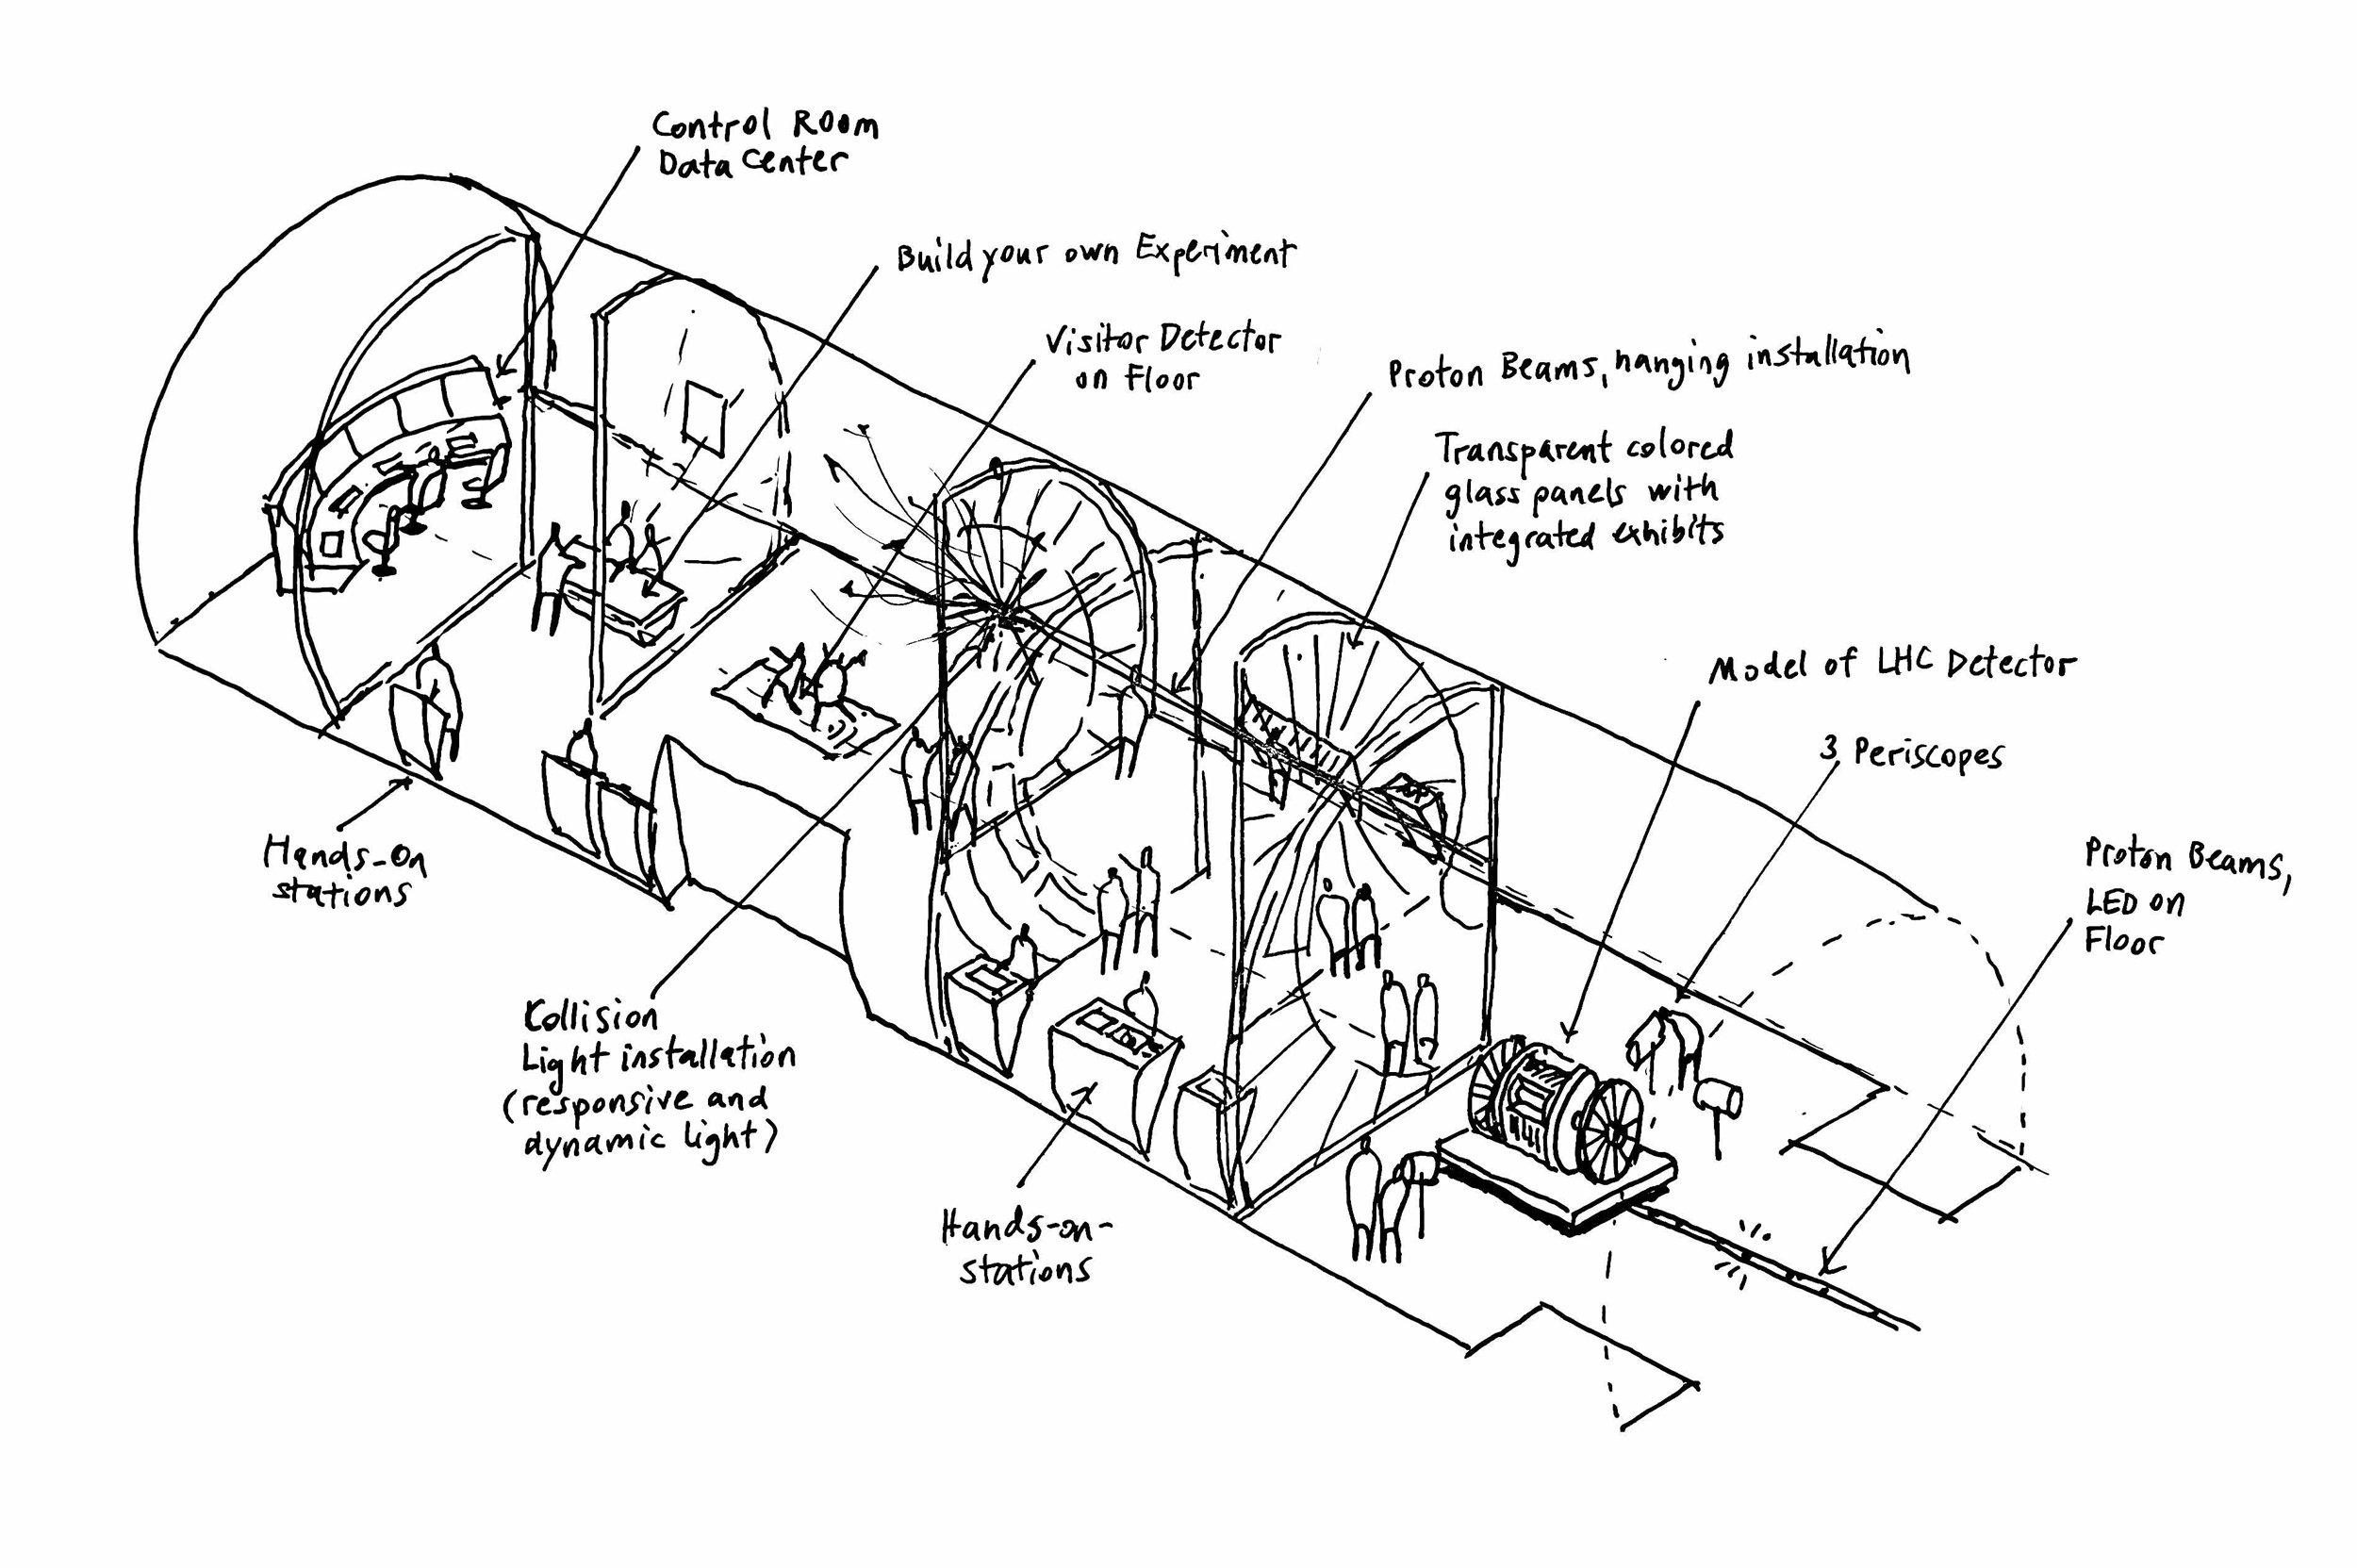 Control Room
Data Center
Build your own Experiment
Visitor Detector
on Floor
Proton Beams, hanging installation
Transparent colored
glass panels with
integrated exhibits
Model of LHC Detector
3 Periscopes
Proton Beams,
LED on
Floor
Hands-On
stations
Collision
Light installation
(responsive and
dynamic light)
Hands-on-
stations